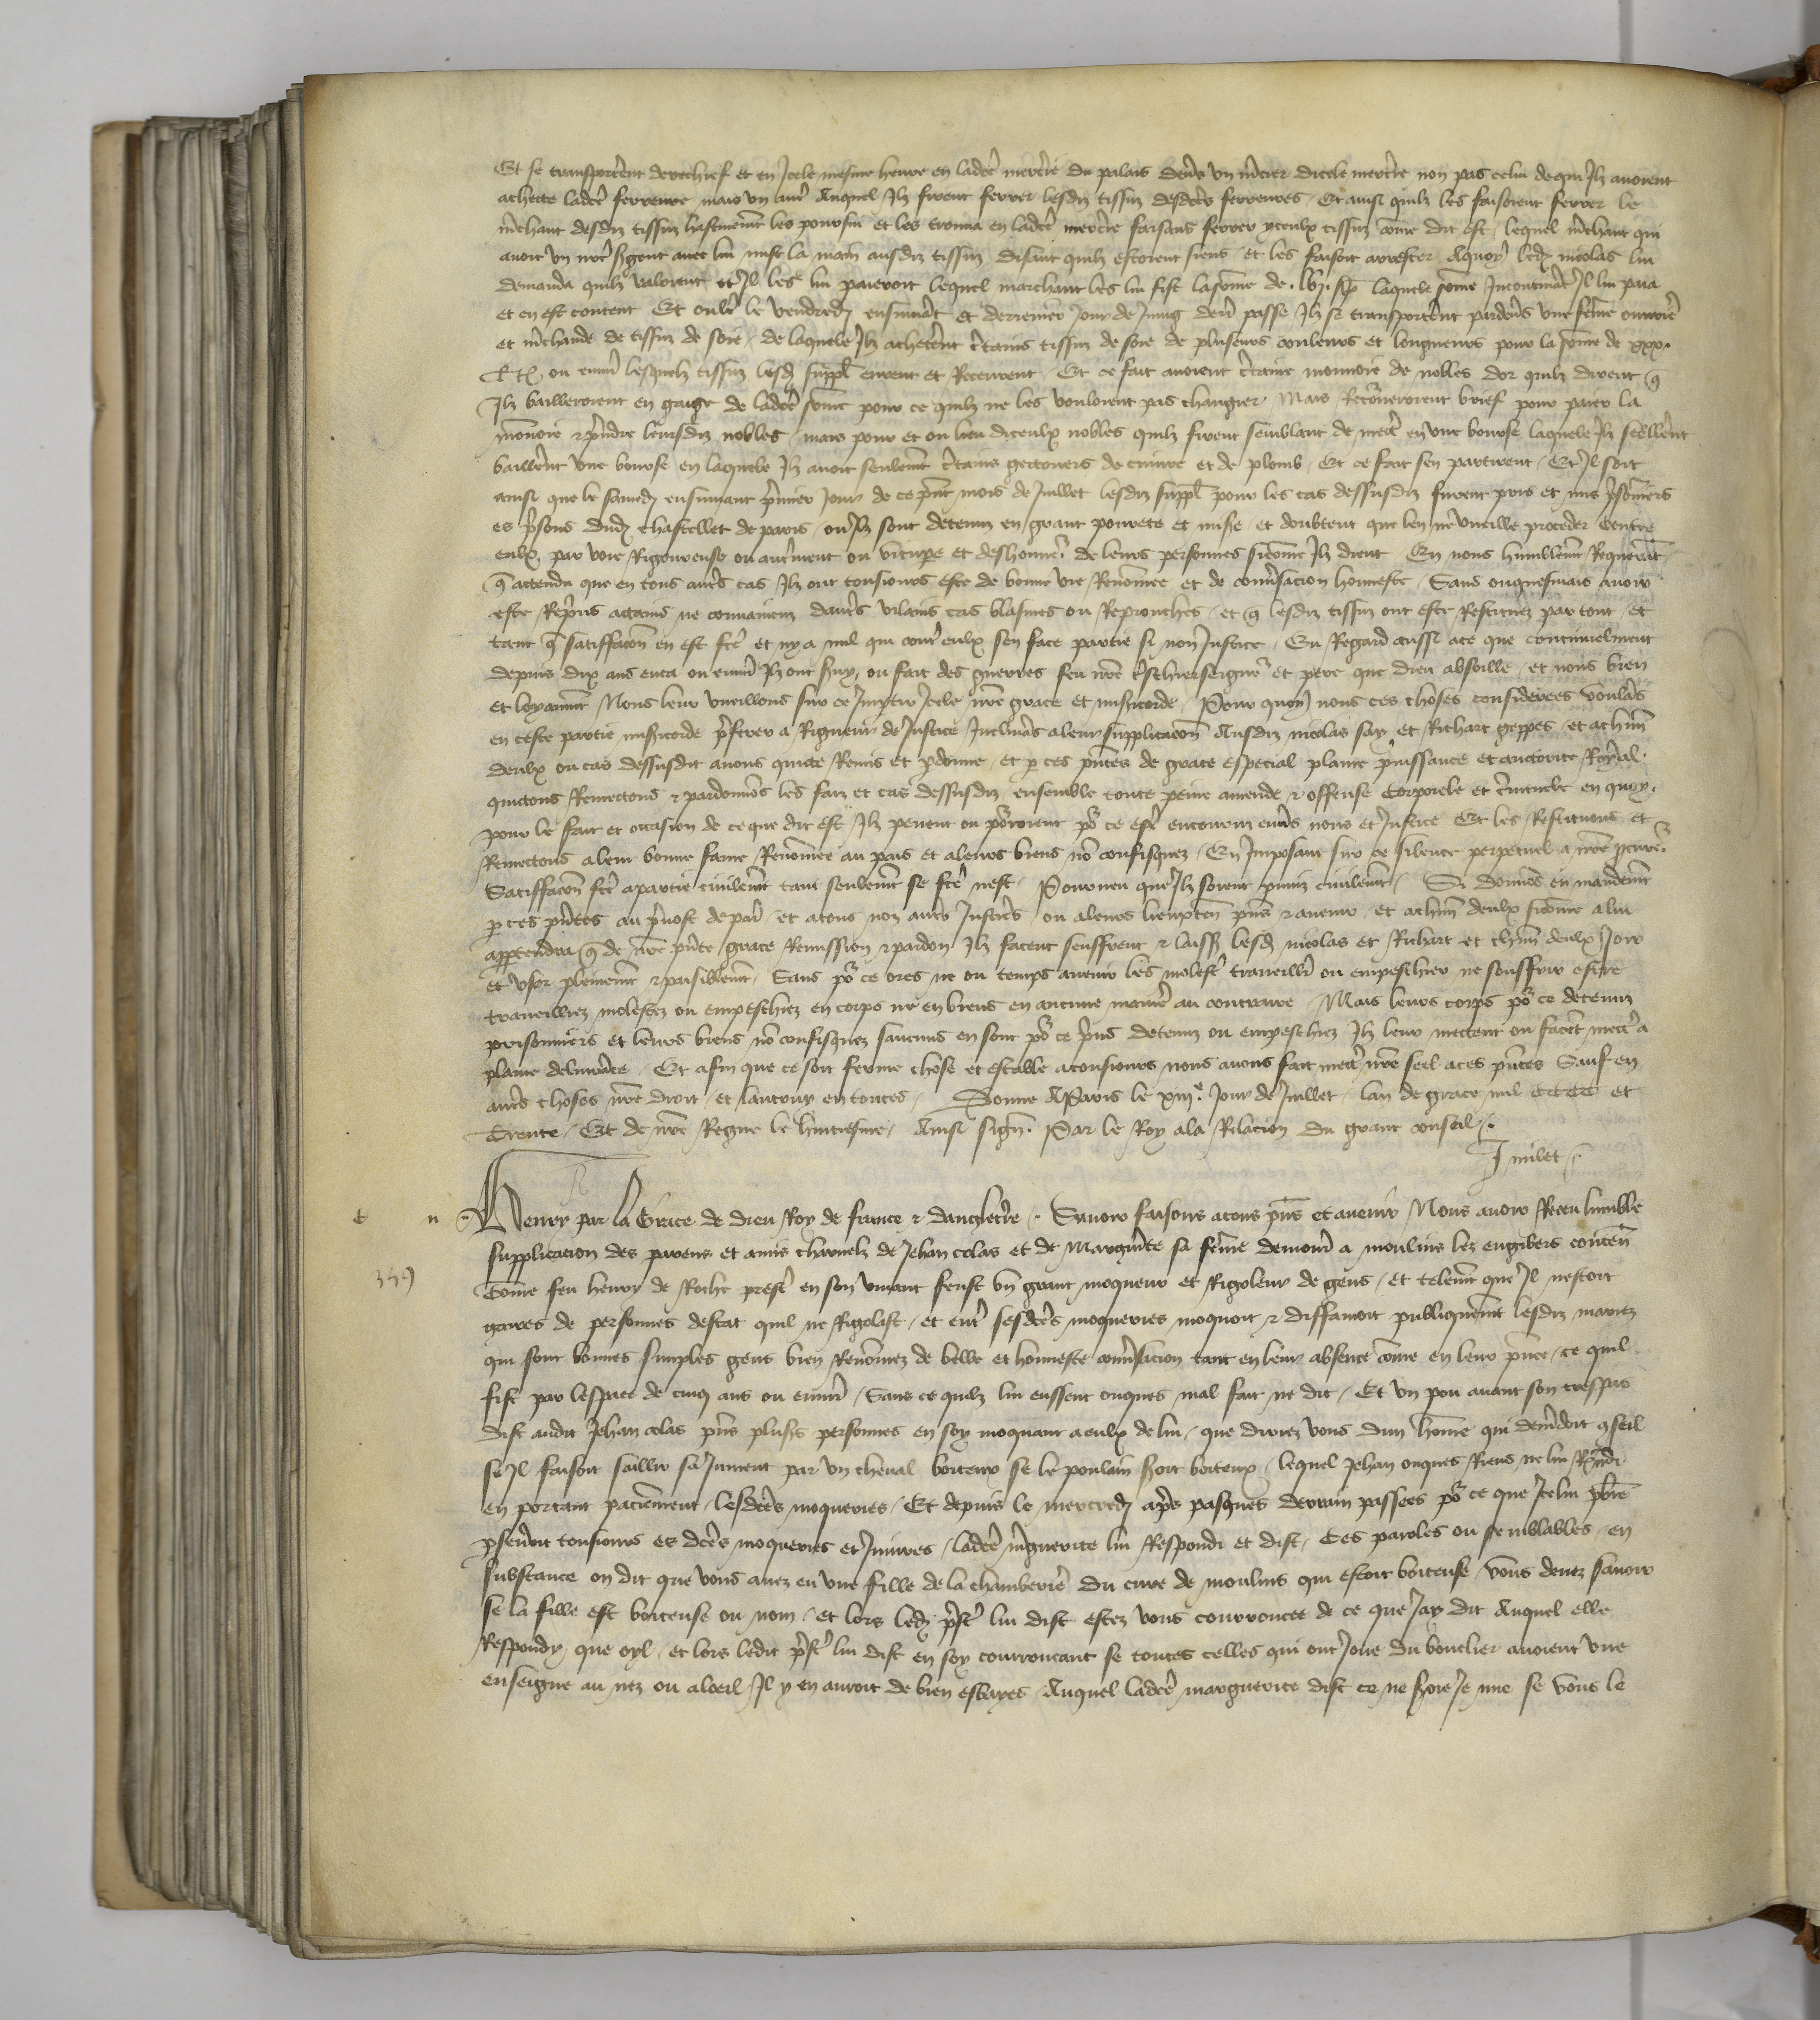 Et se transporterent derechief et en Icele mesme heure en ladcte mercerie du palais devers un mercier dicele mercerie non pas celui de qui Ilz avoient
achette ladcte ferreure mais un autre Auquel Ilz firent ferrer lesdiz tissuz desdictes ferreures Et ainsi quilz les faisoient ferrer le
marchant desdiz tissuz hastivement les poursui et les trouva en ladcte mercerie faisans ferrer yceulx tissuz comme dit est lequel marchant qui
avoit un notre sergent avec lui mist la main ausdiz tissuz disant quilz estoient siens et les faisoit arrester Aquoy ledit nicolas lui
demanda quilz valoient et Il les lui paieroit lequel marchant les lui fist la somme de laquele somme Incontinent Il lui paia
et en est content Et oultre le vendredi ensuivant et derrenier Jour de Juing dernier passe Ilz se transporterent pardevers une femme ouvriere
et marchande de tissuz de soie de laquele Ilz acheterent certains tissuz de soie de pluseurs couleurs et longueurs pour la somme de xxx.
ou environ lesquelz tissuz lesd suppl eurent et Receurent Et ce fait avoient certaine monnoie de nobles dor quilz dirent que
Ilz bailleroient en gaige de ladcte somme pour ce quilz ne les vouloient pas changier Mais Retourneroient brief pour paier la
monnoie et prendre leursdiz nobles mais pour et ou lieu diceulx nobles quilz firent semblant de mettre en une bourse laquele Ilz seellerent
baillerent une bourse en laquele Ilz avoit seulement certains gectouers de cuivre et de plomb Et ce fait sen partirent Et Il soit
ainsi que le samedi ensuivant premier Jour de ce present mois de Juillet lesdiz suppl pour les cas dessusdiz furent pris et mis prisonniers
es prisons dudit chastellet de paris ou Ilz sont detenuz en grant povrete et misere et doubtent que len ne vueille proceder contre
eulx par voie Rigoureuse ou autrement ou vitupere et deshonneur de leurs personnes sicomme Ilz dient En nous humblement Requerant
que attendu que en tous autres cas Ilz ont tousiours este de bonne vie Renommee et de conversacion honneste Sans onquesmais avoir
este Repris attains ne convaincuz dautres vilains cas blasmes ou Reprouches et que lesdiz tissuz ont este Restituez par tout et
tant que satiffaccion en est fcte et ny a nul qui contre eulx sen face partie si non Justice Eu Regard aussi ace que continuelment
depuis dix ans enca ou environ Ilz ont servy ou fait des guerres feu notre treschierseigneur et pere que dieu absoille et nous bien
et loyaument Nous leur vueillons sur ce Impartir Icele notre grace et misericorde Pour quoy nous ces choses considerees voulans
en ceste partie misericorde preferer a Rigueur de Justice Inclinans aleur supplicacion Ausdiz nicolas say et Richart geppes et achacun
deulx ou cas dessusdit avons quicte Remis et pardonne et par ces presentes de grace especial plaine puissance et auctorite Royal
quictons Remettons et pardonnons les faiz et cas dessusdiz ensemble toute peine amende et offense Corporele et criminele en quoy
pour le fait et occasion de ce que dit est Ilz pevent ou porroient pour ce estre encouruz envers nous et Justice Et les Restituons et
Remettons aleur bonne fame Renommee au pais et aleurs biens non confisquez En Imposant sur ce silence perpetuel a notre procureur
Satiffaccion fcte apartie civilement tant seulement se fcte nest Pourveu que Ilz soient puniz civilement Si donnons en mandement
par ces presentes au prevost de paris et atous noz autres Justiciers ou aleurs lieuxtenans presens et avenir et achacun deulx sicomme alui
appartendra que de notre presente grace Remission et pardon Ilz facent seuffrent et laissent lesd nicolas et Richart et chacun deulx Joir
et user plainement et paisiblement Sans pour ce ores ne ou temps avenir les molester traveillier ou empeschier ne souffrir estre
traveilliez molestez ou empeschiez en corps ne en biens en aucune maniere au contraire Mais leurs corps pour ce detenuz
prisonniers et leurs biens non confisquez saucuns en sont pour ce prins detenuz ou empeschiez Ilz leur mettent ou facent mettre a
plaine delivrance Et afin que ce soit ferme chose et estable atousiours nous avons fait mettre notre seel aces presentes Sauf en
autres choses notre droit et lautruy en toutes Donne AParis le xiiije Jour de Juillet lan de grace mil cccc et
Trente Et de notre Regne le huitiesme Ainsi signe Par le Roy ala Relacion du grant conseil
J milet
Henry par la Grace de dieu Roy de france et dangleterre Savoir faisons atous presens et avenir Nous avoir Receu lumble
supplicacion des parens et amis charnelz de Jehan colas et de Marguerite sa femme demourans a moulins lez engibers contenant
349
Comme feu henry de Roche prestre en son vivant feust un grant moqueur et Rigoleur de gens et telement que Il nestoit
gaires de personnes destat quil ne Rigolast et entre sesdctes moqueries moquoit et diffamoit publiquement lesdiz mariez
qui sont bonnes simples gens bien Renommez de belle et honneste conversacion tant en leur absence comme en leur presence ce quil
fist par lespace de cinq ans ou environ Sans ce quilz lui eussent onques mal fait ne dit Et un pou avant son trespas
dist audit Jehan colas presens plusrs personnes en soy moquant aeulx de lui que diriez vous dun homme qui demandoit conseil
se Il faisoit saillir sa Jument par un cheval boiteux se le poulain seroit boiteux lequel Jehan onques Riens ne lui Respondi
en portant paciemment lesdctes moqueries Et depuis le mercredi apres pasques derrain passees pour ce que Icelui prestre
perseveroit tousiours es dctes moqueries et Iniures ladcte marguerite lui Respondi et dist Ces paroles ou semblables en
substance on dit que vous avez eu une fille de la chamberiere du cure de moulins qui estoit boiteuse vous devez savoir
se la fille est boiteuse ou nom et lors ledit prestre lui dist estez vous courroucee de ce que Jay dit Auquel elle
Respondy que oyl et lors ledit prestre lui dist en soy courroucant se toutes celles qui ont Joue du bouclier avoient une
enseigne au nez ou aloeil Il y en auroit de bien esbayes Auquel ladcte marguerite dist ce ne seroie Je mie se vous le